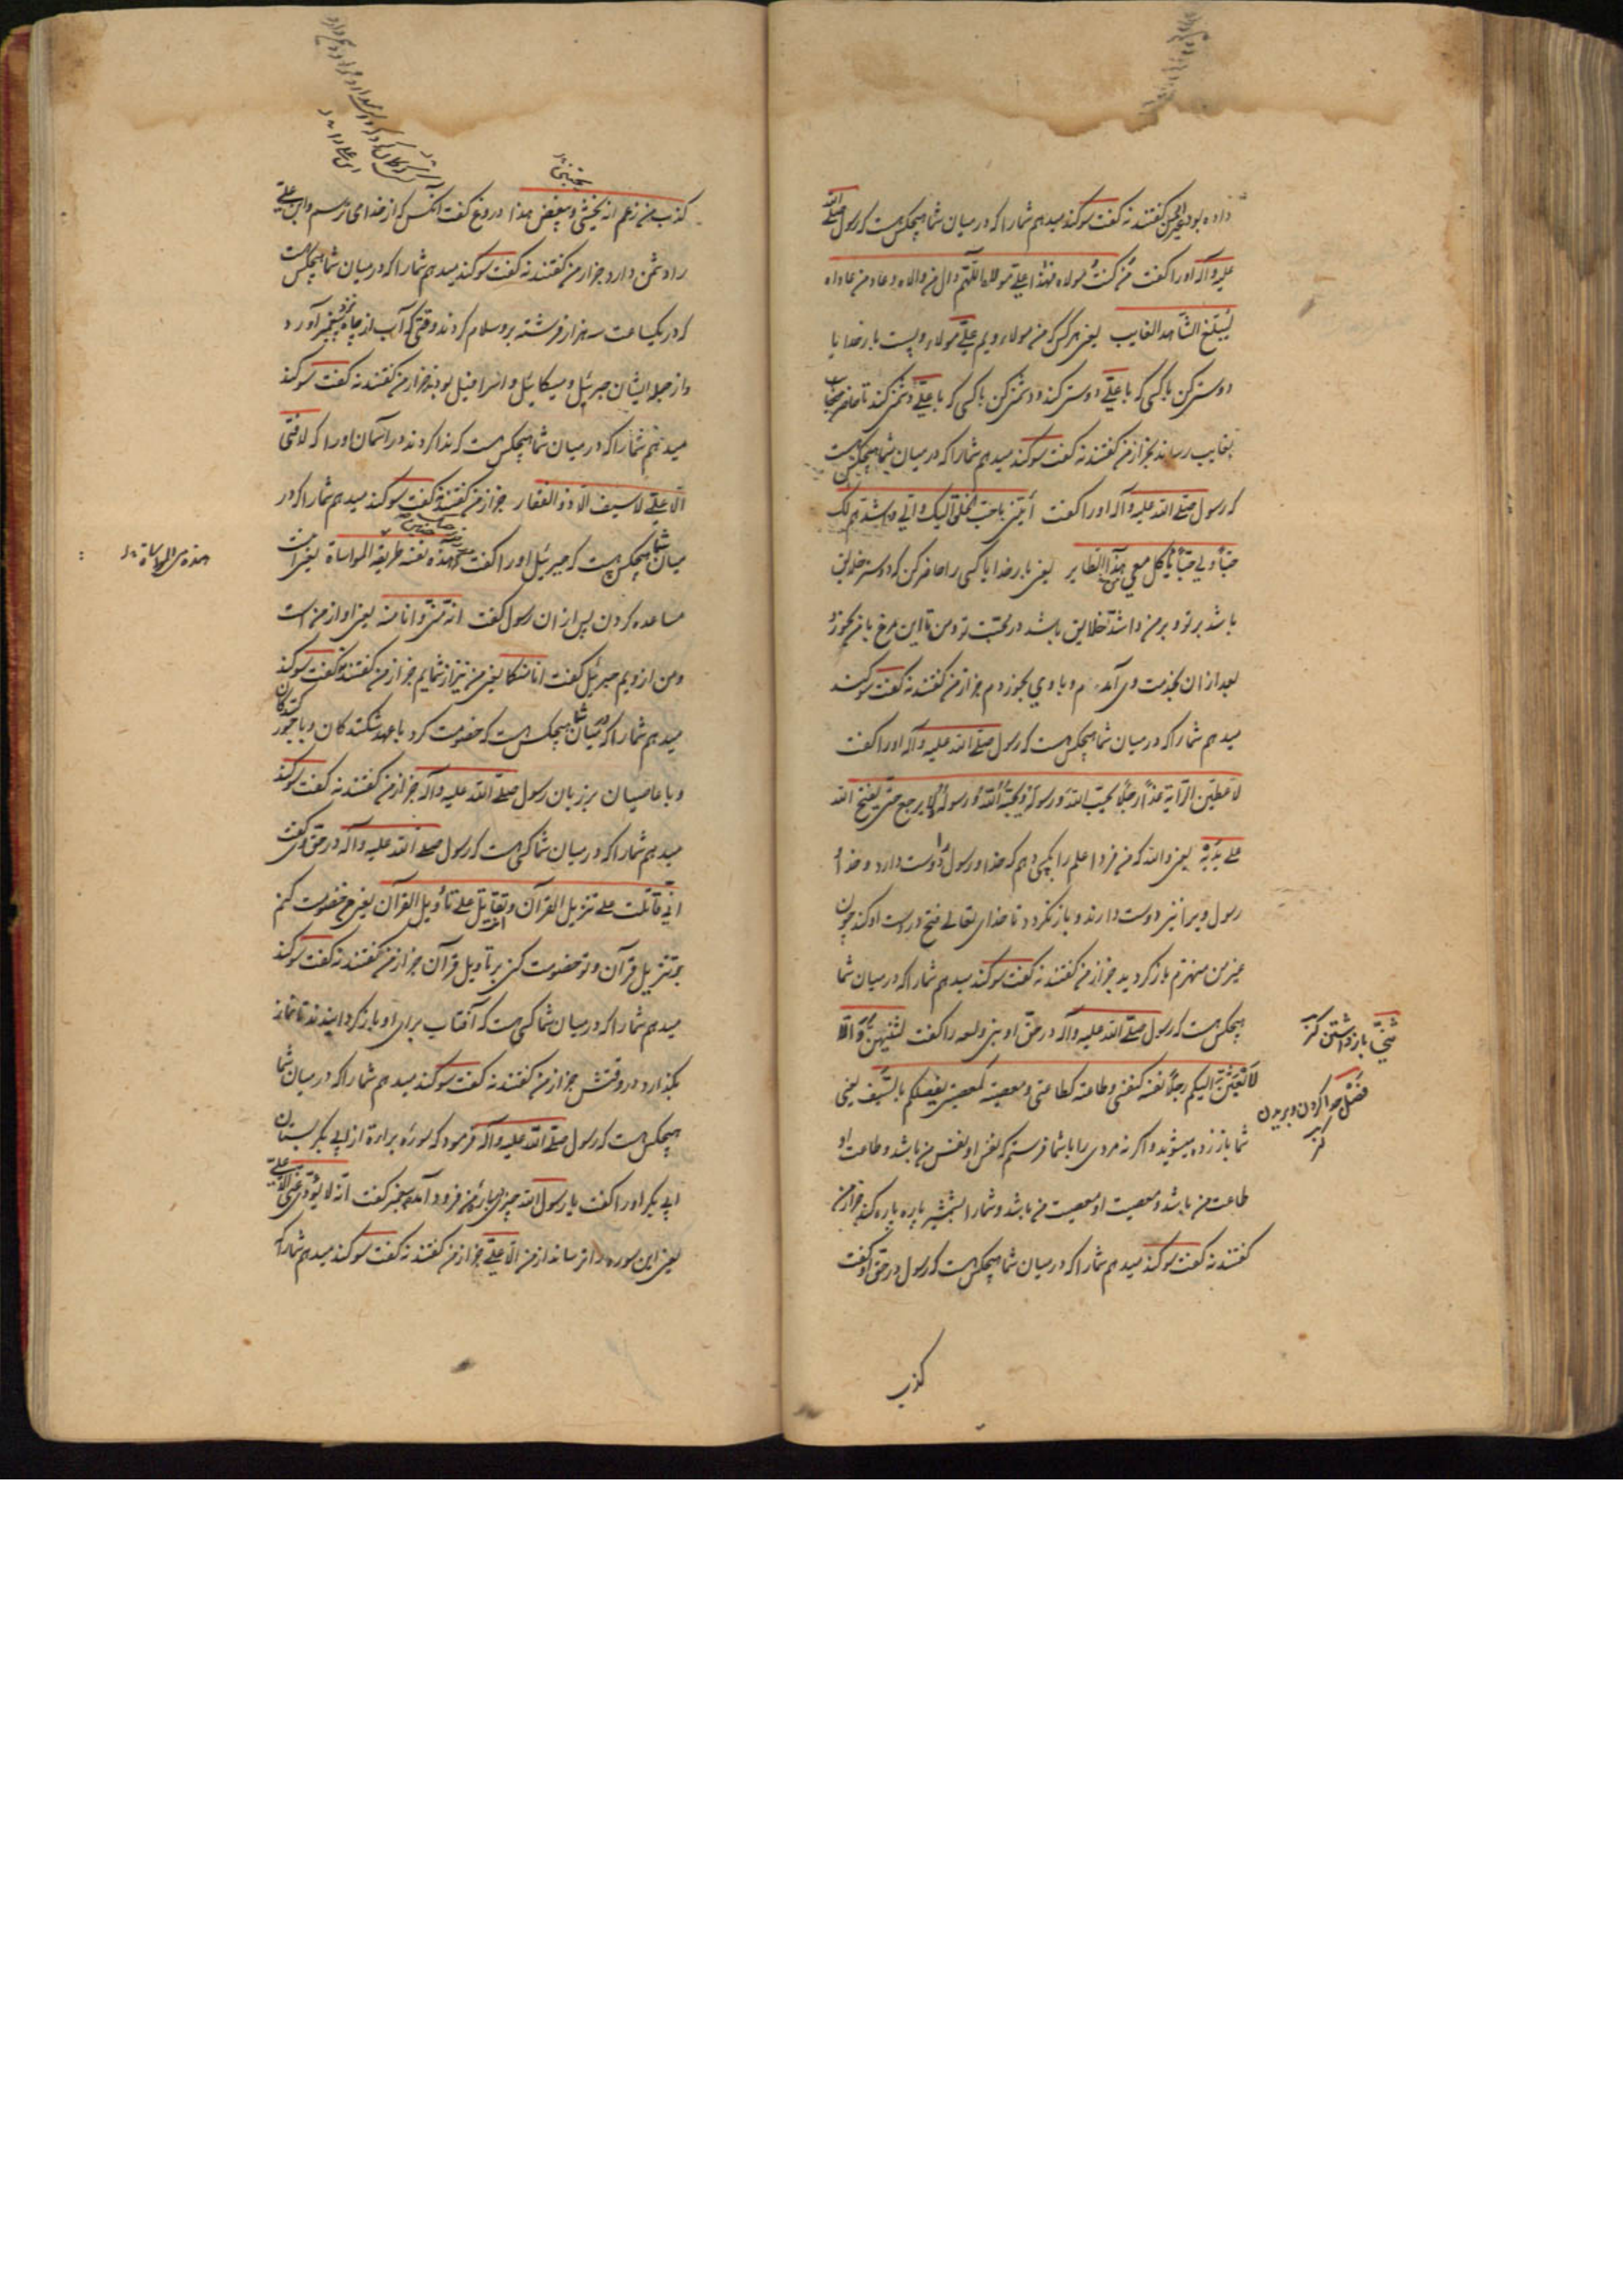 داده بود بغیر من گفتند نه گفت سوکند میدهم شما را که در میان شما هیچکس هست که رسول صلی الله
علیه و آله او را گفت من کنت مولاه فهذا علی مولاه اللهم وال من والاه و عاد من عاداه
لیبلغ الشاهد الغایب یعنی هر کس که من مولاء ویم علی مولاء ویست بار خدایا
دوستی کن با کسی که با علی دوستی کند و دشمنی کن با کسی که با علی دشمنی کند تا حاضر
بغایب رساند بجز از من گفتند نه گفت سوکند میدهم شما را که در میان شما هیچکس هست
که رسول صلی الله علیه و آله او را گفت ائتنی باحب الخلق الیک و الی و اشدهم لک
حبا و لی حبا یأکل معی هذا الطایر یعنی بار خدایا کسی را حاضر کن که دوستر خلایق
باشد بر تو و بر من و اشد خلایق باشد در محبت تو و من تا این مرغ با من بخورد
بعد از ان بخدمت وی آمدم و با وی بخوردم جز از من گفتند نه گفت سوکند
میدهم شما را که در میان شما هیچکس هست که رسول صلی الله علیه و آله او را گفت
لاعطین الرایة غدا رجلا یحب الله و رسوله و یحبه الله و رسوله لا یرجع حتی یفتح الله
علی یدیه یعنی والله که من فردا علم را بکسی دهم که خدا و رسول را دوست دارد و خدا و
رسول ویرا نیز دوست دارند و باز نکردد تا خدای تعالی فتح در دست او کند چون
غیر من منهزم باز کردید جز از من گفتند نه گفت سوکند میدهم شما را که در میان شما
هیچکس هست که رسول صلی الله علیه و آله در حق او بنی ولیعه را گفت لتنتهن و الا
لابعثن الیکم رجلا نفسه کنفسی و طاعته کطاعتی و معصیته کمعصیتی یفصلکم بالسیف یعنی
شما باز زده میشوید و اگر نه مردی را با شما فرستم که نفس او نفس من باشد و طاعت او
طاعت من باشد و معصیت او معصیت من باشد و شما را بشمشیر پاره پاره کند جز از من
گفتند نه گفت سوکند میدهم شما را که در میان شما هیچکس هست که رسول در حق او گفت
کذب
باز داشتن کنز
فصل جدا کردن و بریدن
کنز
کذب من زعم انه یحبنی و یبغض هذا دروغ گفت آنکس که از خدای ترسم و این علی
را دشمن دارد جز از من گفتند نه گفت سوکند میدهم شما را که در میان شما هیچکس هست
که در یکساعت سه هزار فرشته برو سلام کردند وقتی که آب از چاه نزد پیغمبر آورد
و از جمله ایشان جبرئیل و میکائیل و اسرافیل بودند جز از من گفتند نه گفت سوکند
میدهم شما را که در میان شما هیچکس هست که ندا کردند در آسمان او را که لا فتی
الا علی لا سیف الا ذو الفقار جز از من گفتند نه گفت سوکند میدهم شما را که در
میان شما هیچکس هست که جبرئیل او را گفت هذه نفسه طریقه المواساة یعنی
مساعده کردن پس از ان رسول گفت انه منی و انا منه یعنی او از من است
و من از ویم جبرئیل گفت انا منکما یعنی من نیز از شمایم جز از من گفتند نه گفت سوکند
میدهم شما را که در میان شما هیچکس هست که خصومت کرد با عهد شکنندکان و با جور کنندکان
و با عاصیان بر زبان رسول صلی الله علیه و آله جز از من گفتند نه گفت سوکند
میدهم شما را که در میان شما کسی هست که رسول صلی الله علیه و آله در حق وی گفت
انی قاتلت علی تنزیل القرآن و تقاتل علی تأویل القرآن یعنی من خصومت کنم
بر تنزیل قرآن و تو خصومت کنی بر تأویل قرآن جز از من گفتند نه گفت سوکند
میدهم شما را که در میان شما کسی هست که آفتاب برای او باز کردانیدند تا نماز
بکذارد در وقتش جز از من گفتند نه گفت سوکند میدهم شما را که در میان شما
هیچکس هست که رسول صلی الله علیه و آله فرمود که سوره براءة از ابی بکر بستان
ابی بکر او را گفت یا رسول الله چیزی در باره من فرود آمد پیغمبر گفت انه لا یؤدی عنی الا علی
یعنی این سوره را نرساند از من الا علی جز از من گفتند نه گفت سوکند میدهم شما را که
یحبنی
هذه هی المواساة